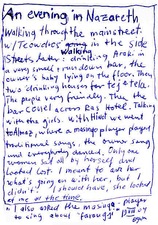 An evening in Nazareth
Walking through the mainstreet.
w/ Tcowdies going in the side
streets later: drinking Arak in
a very small run down bar, the
owner's baby lying on the floor. They
two drinking houses for tej & tella.
The people very friendly. Then the
bar closet across Ras Hotel. Talking
with the girls. With Hiwot we went
to where a masinqo player played
traditional songs, the owner sang
and everybody danced. Only one
woman sat all by herself and
looked lost. I meant to ask her
what's going on with her, but I
didn't. I should have, she looked
at me all the time.
* I also asked the masinqo-player
to sing about "farangi"
again